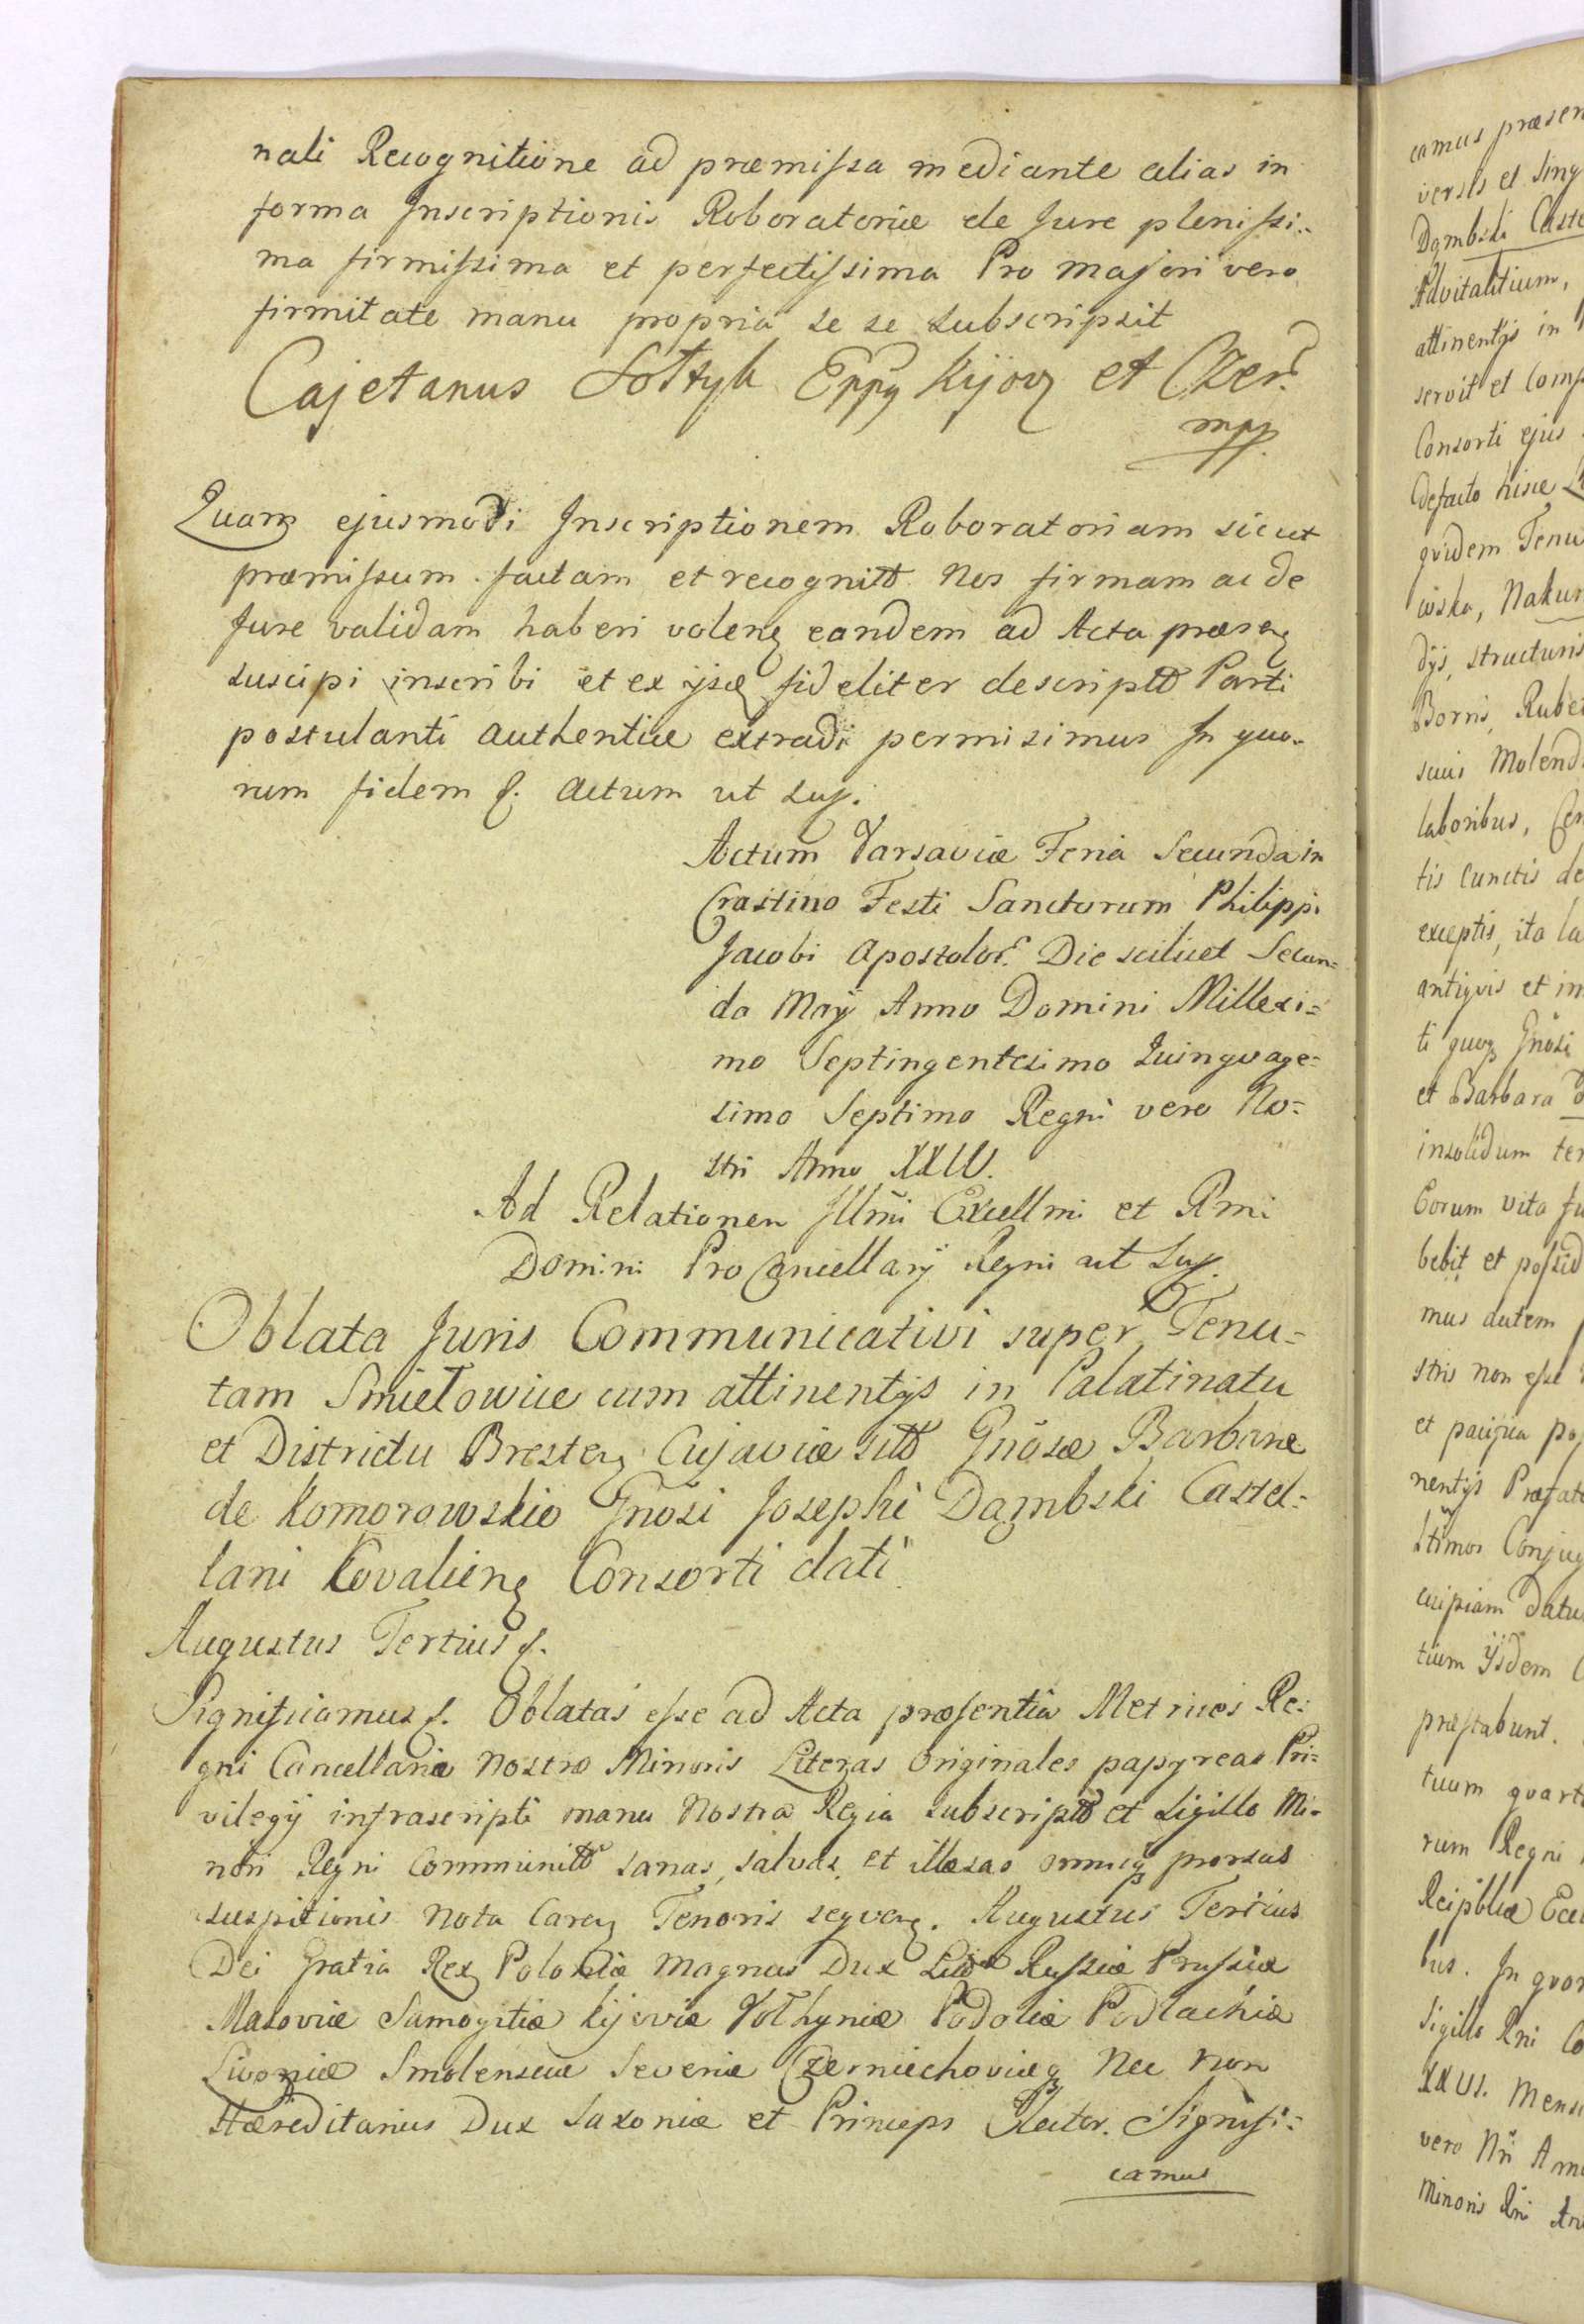 nali Recognitione ad præmissa mediante alias in
forma Inscriptionis Roboratoriæ de Jure plenissi:
ma firmissima et perfectissima Pro majori vero
firmitate manu propria se se subscripsit
Cajetanus Sołtyk Eppg Kijovz et Czer.
mpp.
Quam ejusmodi Inscriptionem Roboratoriam sicut
præmissum factam et recognitt Nos firmam ac de
Jure validam haberi volenz eandem ad Acta præsenz
suscipi inscribi et ex ijsdz fideliter descriptt Parti
postulanti authenticæ extradi permisimus In quo-
rum fidem f. Actum ut sup.
Actum Varsaviæ Feria Secunda in
Crastino Festi Sanctorum Philippi
Jacobi Apostolor. Die scilicet Secun=
da Maÿ Anno Domini Millesi=
mo Septingentesimo Quinqvage=
simo Septimo Regni vero No=
stri Anno XXIV.
Ad Relationem Illmi Excellmi et Rmi
Domini ProCancellarÿ Regni ut sup.
Oblata Juris Communicativi super Tenu=
tam Smiełowice cum attinentÿs in Palatinatu
et Districtu Brestenz Cujaviæ sitt Gnosæ Barbaræ
de Komorowskie Gnosi Josephi Dąmbski Castel=
lani Kovalienz Consorti dati
Augustus Tertius f.
Significamus f. Oblatas esse ad Acta præsentia Metrices Re:
gni Cancellariæ Nostræ Minoris Literas Originales papyreas Pri=
vilegÿ infrascripti manu Nostra Regia subscriptt et Sigillo Mi=
nori Regni Communitt sanas, salvas et illæsas omniqz prorsus
suspitionis nota Carenz Tenoris seqvenz. Augustus Tertius
Dei Gratia Rex Poloniæ Magnus Dux Litt Russiæ Prussiæ
Masoviæ Samogitiæ Kijoviæ Vołhyniæ Podoliæ Podlachiæ
Livoniæ Smolensciæ Severiæ Czerniechoviæqz Nec non
Hæreditarius Dux Saxoniæ et Princeps Elector. Signifi=
camus
camus præsen
versis et sing
Dąmbski Caste
Advitalitium,
attinentÿs in
servit et Comp
Consorti ejus
defacto hisce
qvidem Tenu
wska, Nakur
dÿs, structuris
Bornis, Rube
suis Molend
laboribus, Cen
tis cunctis de
exceptis, ita la
antiqvis et in
ti qvoqz Gnosi
et Barbara
insolidum ten
Eorum vita
bebit et possid
mus autem
stris non esse
et pacifica po
nentÿs Præfat
stimos Conjug
cuipiam Datu
tium ÿsdem
præstabunt.
tuum qvart
rum Regni
Reipblicæ Eccl
bus. In qvor
Sigillo Rni Co
XXVI. Mens
vero Nri Ann
Minoris Rni